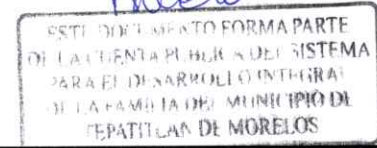 ESTE DOCUMENTO FORMA PARTE
DE LA CUENTA PUBLICA DEL SISTEMA
PARA EL DESARROLLO INTEGRAL
DE LA FAMILIA DEL MUNICIPIO DE
TEPATITLAN DE MORELOS